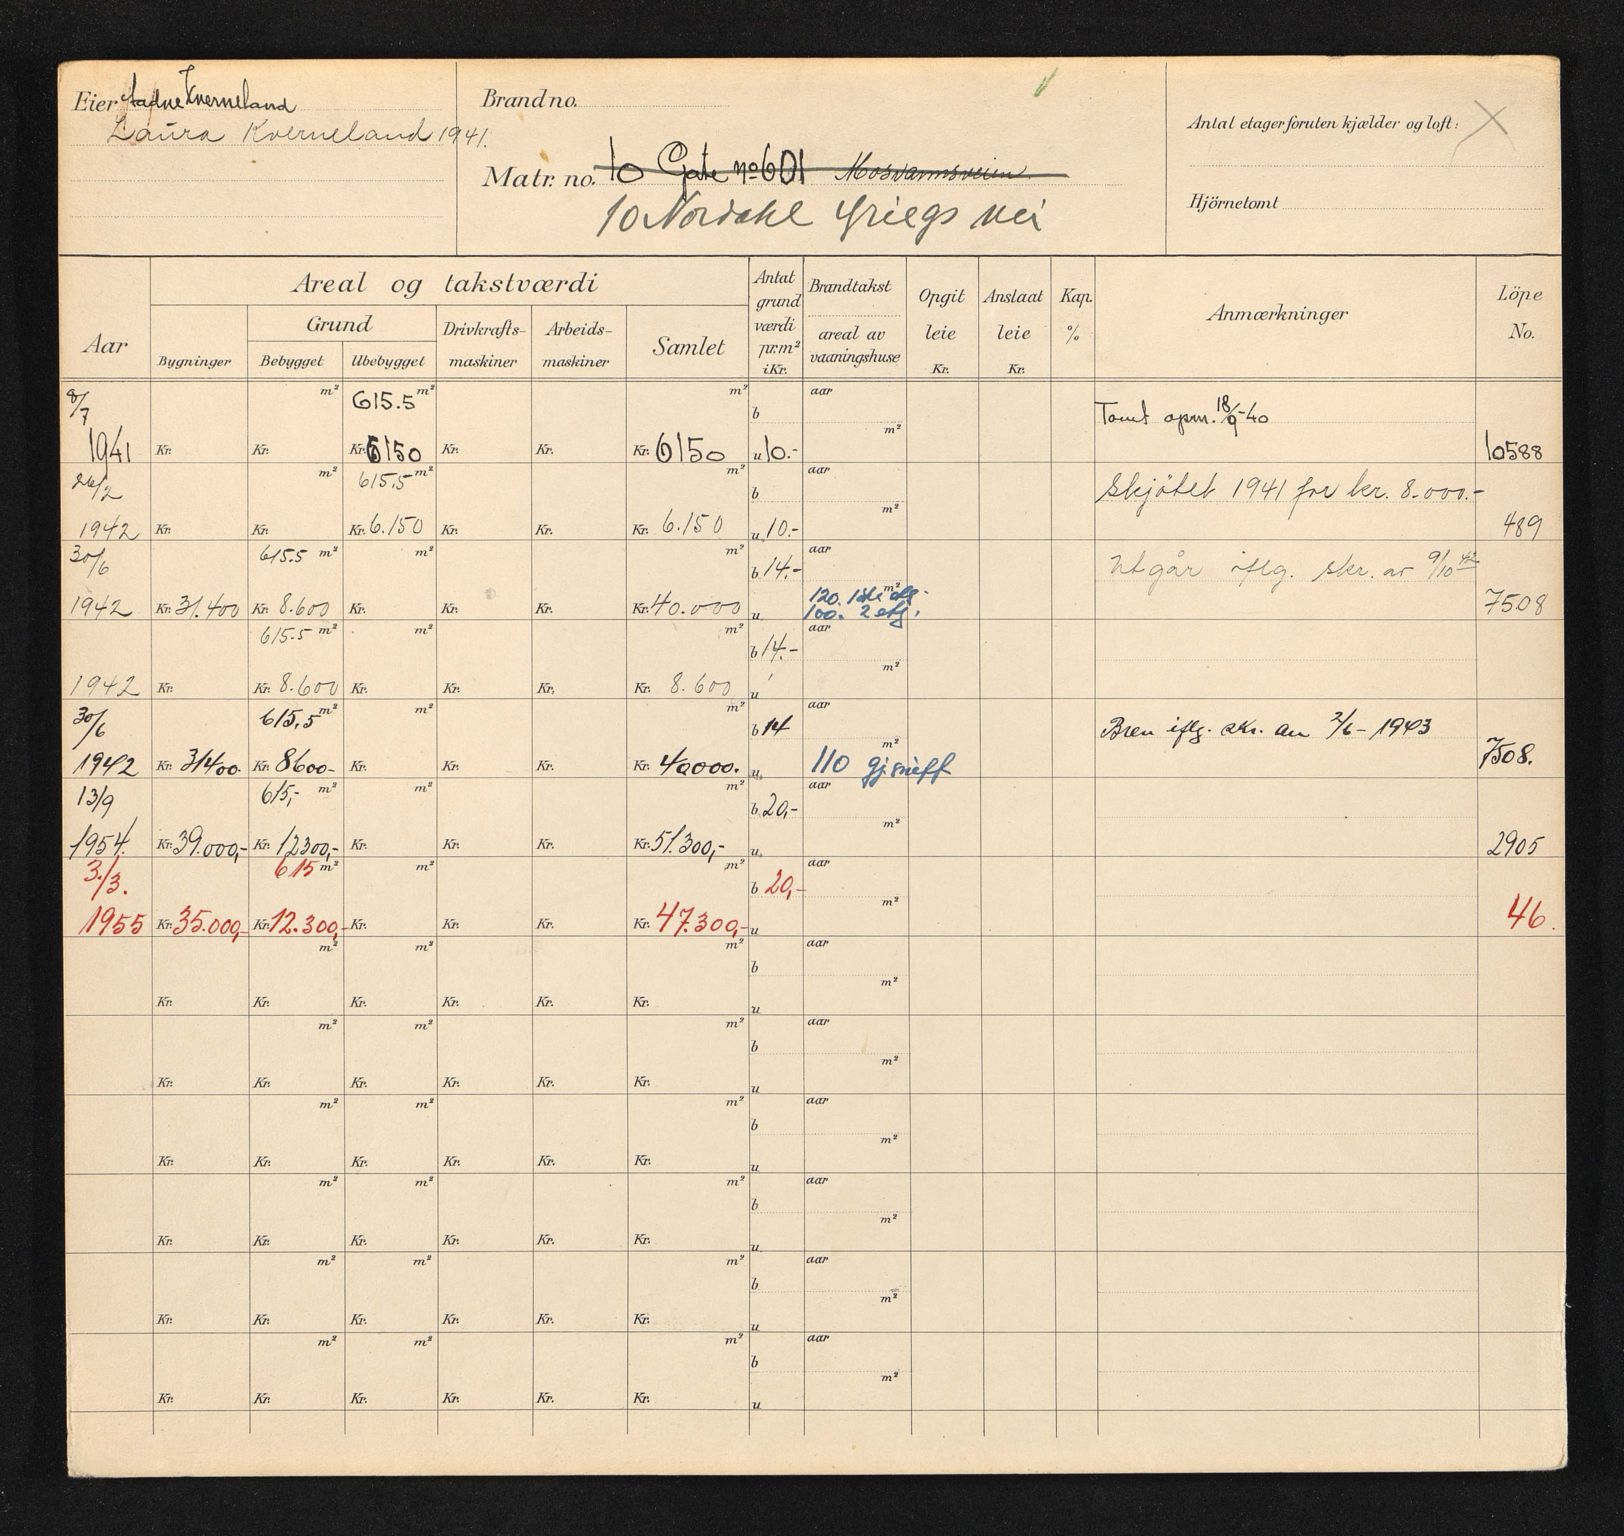 Eier Aadne Kverneland
Laura Kverneland 1941.
Brandno.
Matr. no. 10 Gate no 601 Mosvannsveien
10 Nordahl Griegs vei
Antal etager foruten kjælder og loft: X
Hjörnetomt
Aar
Areal og takstværdi
Bygninger
Grund
Bebygget
Ubebygget
Drivkrafts-
maskiner
Arbeids-
maskiner
Samlet
Antat
grund
værdi
pr.m²
i Kr.
Brandtakst
areal av
vaaningshuse
Opgit
leie
Kr.
Anslaat
leie
Kr.
Kap.
%
Anmærkninger
Löpe
No.
8/7 m² 615.5 m² m² b aar Tomt opm. 18/9-40
1941 Kr. Kr. Kr. 6150 Kr. Kr. Kr. 6150 u 10.- m² 10588
26/2 m² 615,5 m² m² b aar Skjötet 1941 for kr. 8.000.-
1942 Kr. Kr. Kr. 6.150 Kr. Kr. Kr. 6.150 u 10.- m² 489
30/6 615.5 m² m² m² b 14.- aar Utgår iflg. skr. av 9/10 42
1942 Kr. 31.400 Kr. 8.600 Kr. Kr. Kr. Kr. 40.000 u m² 7508
120. 1ste etg.
100. 2 etg.
615.5 m² m² m² b 14.- aar
1942 Kr. Kr. 8.600 Kr. Kr. Kr. Kr. 8.600 u m²
30/6 615,5 m² m² m² b 14 aar Brev iflg. skr. av 2/6-1943
1942 Kr. 31400. Kr. 8600- Kr. Kr. Kr. Kr. 40000. u 110 m² 7508.
13/9 615,- m² m² m² b 20,- aar
1954. Kr. 39.000,- Kr. 12300,- Kr. Kr. Kr. Kr. 51.300,- u m² 2905
3./3. 615 m² m² m² b 20,- aar
1955 Kr. 35.000,- Kr. 12.300,- Kr. Kr. Kr. Kr. 47.300,- u m² 46.
m² m² m² b aar
Kr. Kr. Kr. Kr. Kr. Kr. u m²
m² m² m² b aar
Kr. Kr. Kr. Kr. Kr. Kr. u m²
m² m² m² b aar
Kr. Kr. Kr. Kr. Kr. Kr. u m²
m² m² m² b aar
Kr. Kr. Kr. Kr. Kr. Kr. u m²
m² m² m² b aar
Kr. Kr. Kr. Kr. Kr. Kr. u m²
m² m² m² b aar
Kr. Kr. Kr. Kr. Kr. Kr. u m²